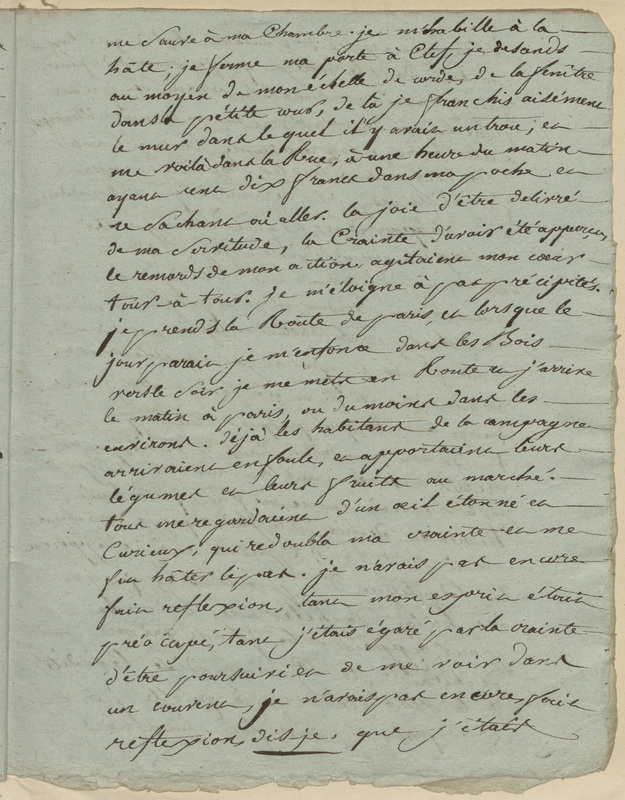 me sauve à ma Chambre. je m'habille à la
hâte; je ferme ma porte à Clef, je descends
au moyen de mon échelle de corde, de la fenêtre
dans la pétite cour, de là je franchis aisément
le mur dans le quel il y avait un trou; et
me voilà dans la Rue, à une heure du matin
ayant cent dix francs dans ma poche et
ne sachant où aller. la joie d'être delivré
de ma servitude, la Crainte d'avoir été apperçu,
le remords de mon action, agitaient mon cœur
tour-à-tour. je m'éloigne à pas précipités.
je prends la Route de paris, et lorsque le
jour parait je m'enfonce dans les Bois
vers le soir je me mets en Route et j'arrive
le matin à paris, ou du moins dans les
environs. déjà les habitans de la campagne
arrivaient en foule, et apportaient leurs
légumes et leurs fruits au marché.
tous me regardaient d'un œil étonné et
Curieux, qui redoubla ma crainte et me
fit hâter le pas. je n'avais pas encore
fait reflexion, tant mon esprit était
préocupé, tant j'étais égaré par la crainte
d'être poursuivi et de me voir dans
un couvent, je n'avais pas encore fait
reflexion, dis je, que j'étais